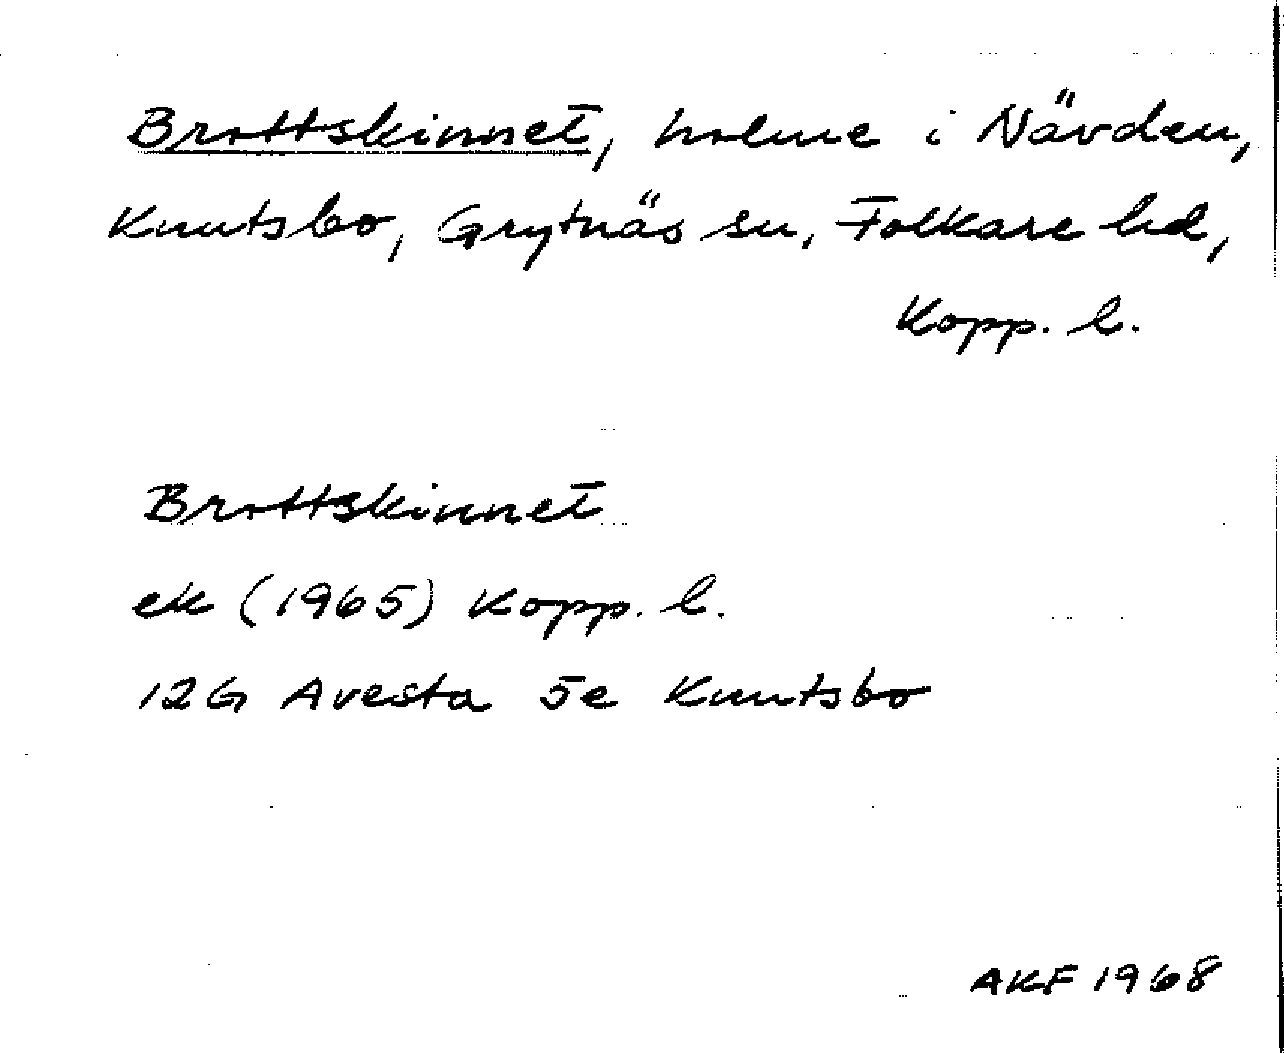 Brottskinnet, holme i Nävden,
Knutsbo, Grytnäs sn, Folkare hd,
Kopp. l.
Brottskinnet
ek (1965) Kopp. l.
12G Avesta 5e Knutsbo
AKF 1968